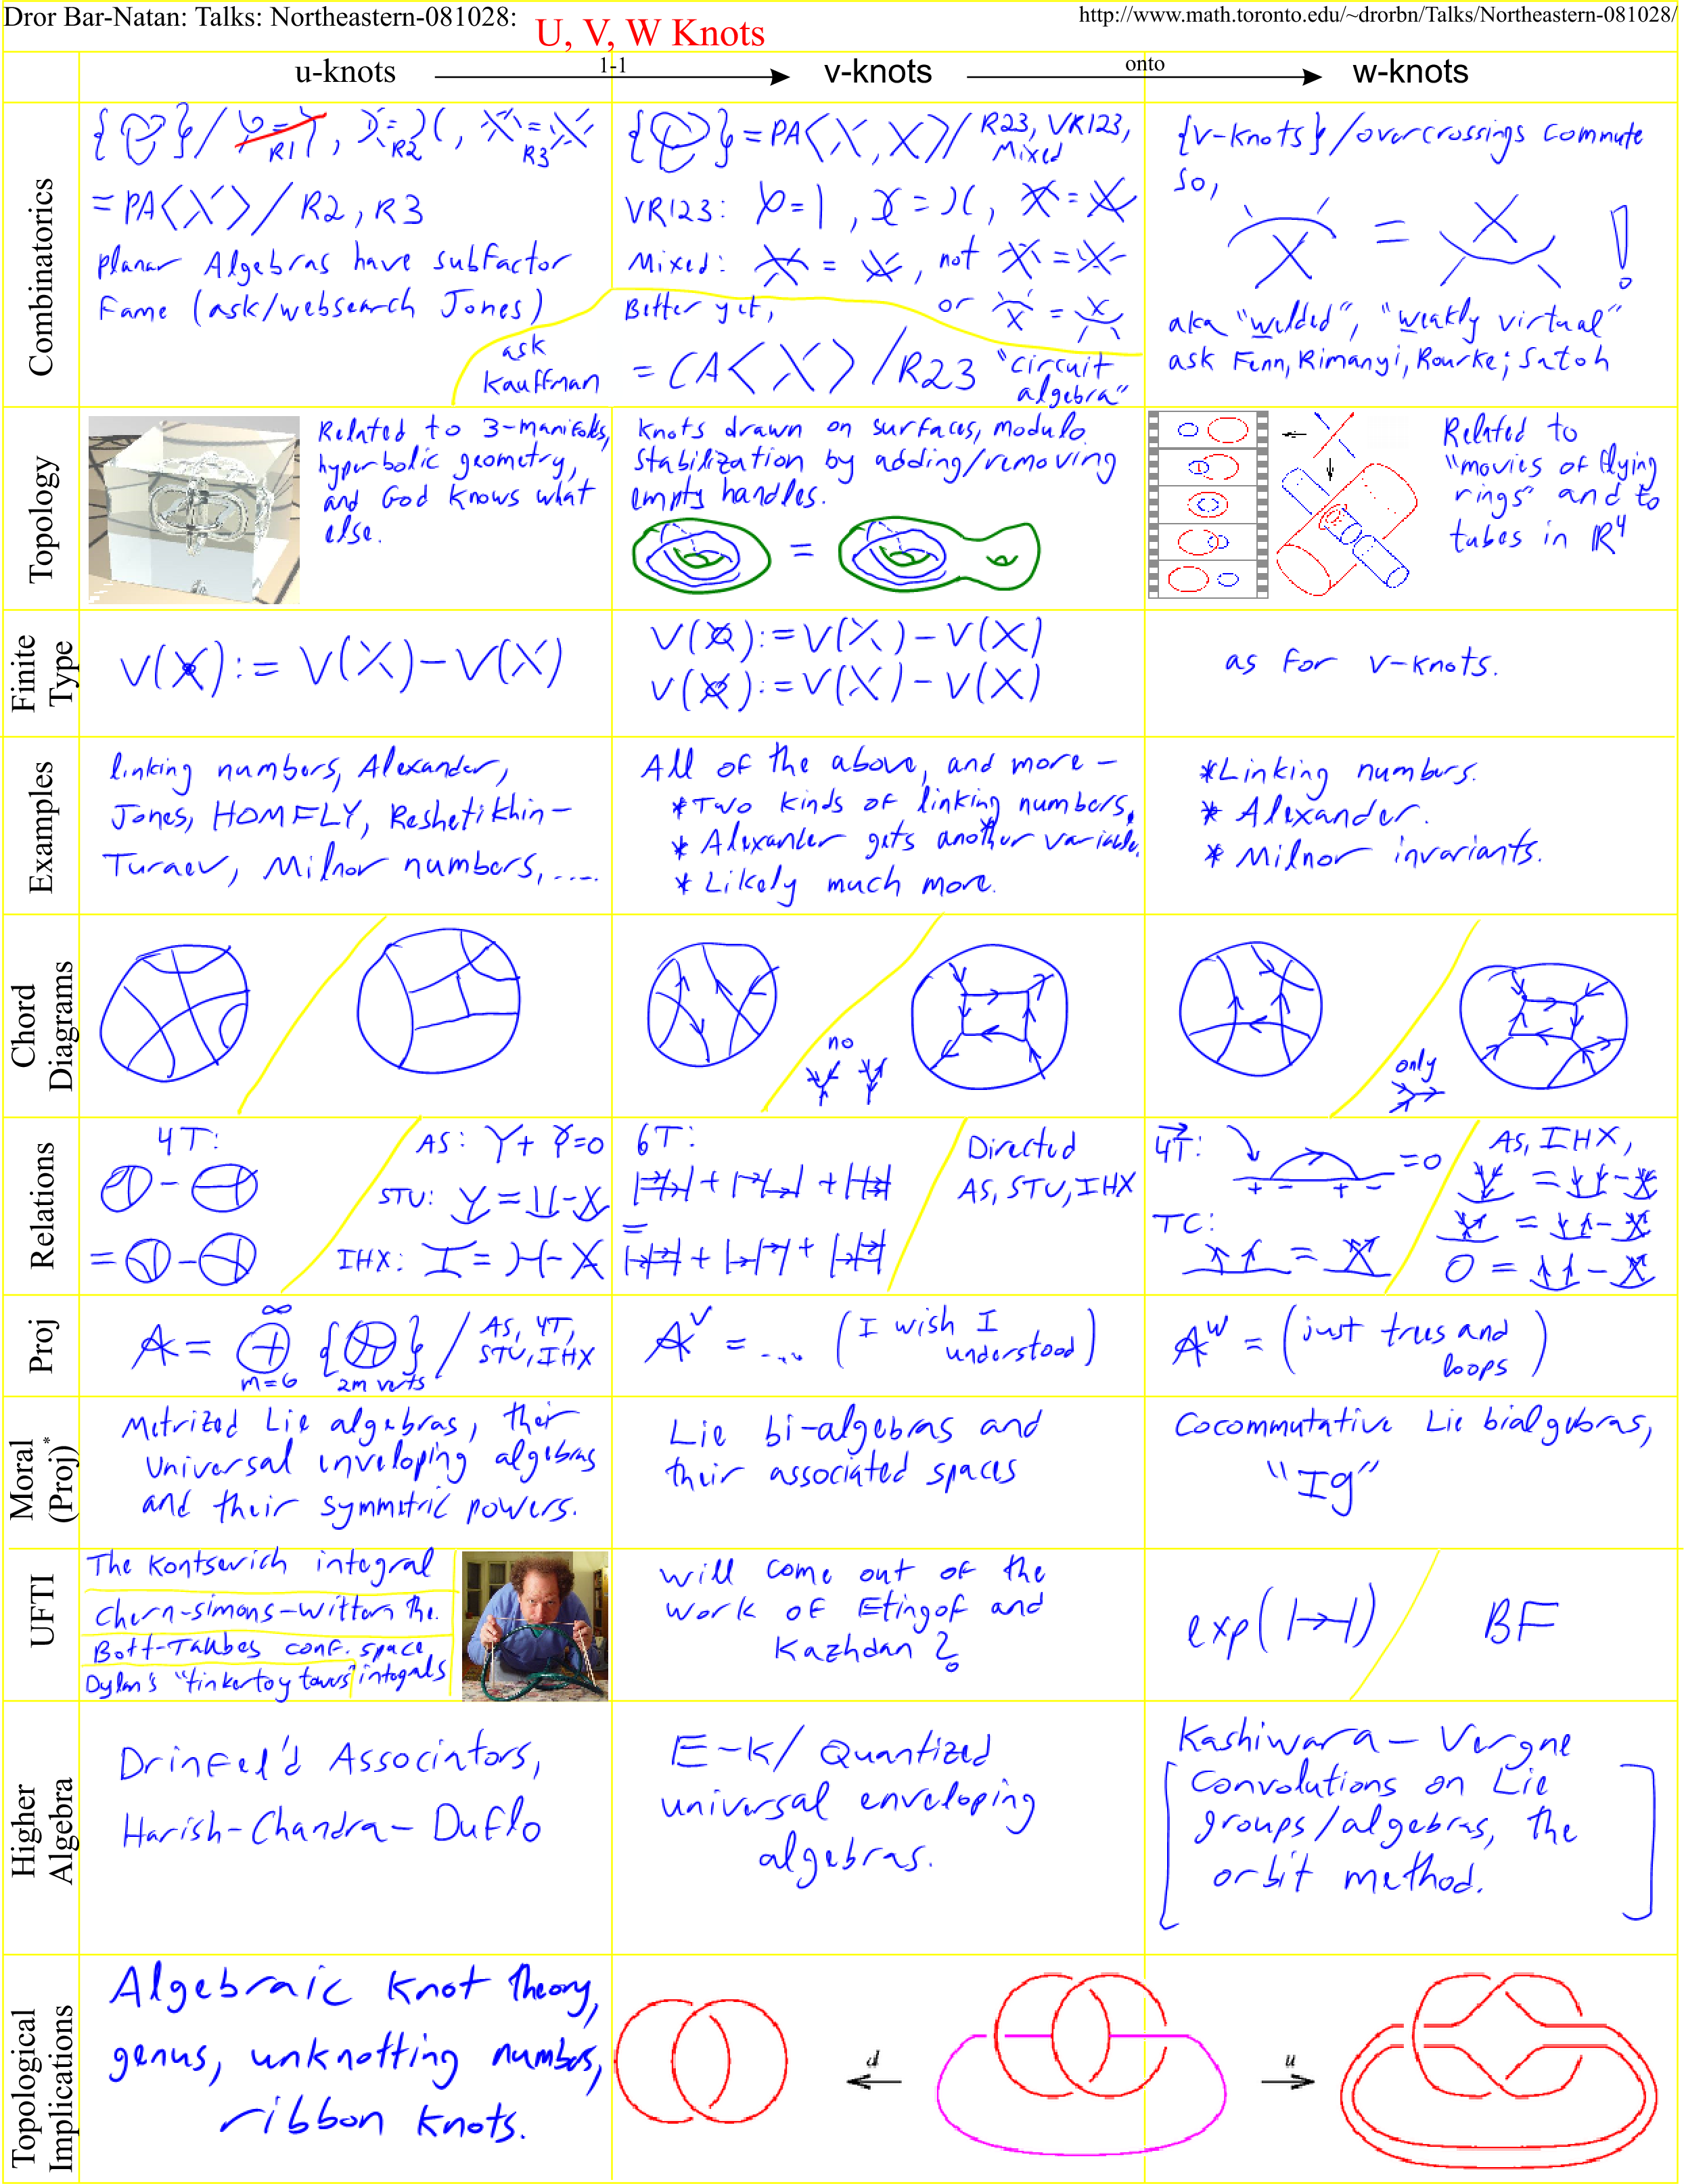 Dror Bar-Natan: Talks: Northeastern-081028:
http://www.math.toronto.edu/~drorbn/Talks/Northeastern-081028/
U, V, W Knots
u-knots
1-1
v-knots
onto
w-knots
Combinatorics
R1
R2
R3
= PA⟨X⟩ / R2, R3
planar Algebras have subfactor
fame (ask/websearch Jones)
ask
Kauffman
= PA⟨X, X⟩ / R23, VR123,
Mixed
VR123:
Mixed:
, not
or
Better yet,
= CA⟨X⟩ / R23 "circuit
algebra"
{v-knots} / overcrossings commute
so,
=
!
aka "welded", "weakly virtual"
ask Fenn, Rimanyi, Rourke; Satoh
Topology
Related to 3-manifolds,
hyperbolic geometry,
and God knows what
else.
knots drawn on surfaces, modulo
stabilization by adding/removing
empty handles.
=
Related to
"movies of flying
rings" and to
tubes in R⁴
Finite
Type
V(X) := V(X) - V(X)
V(X) := V(X) - V(X)
V(X) := V(X) - V(X)
as for v-knots.
Examples
linking numbers, Alexander,
Jones, HOMFLY, Reshetikhin-
Turaev, Milnor numbers, ....
All of the above, and more -
* Two kinds of linking numbers,
* Alexander gets another variable.
* Likely much more.
* Linking numbers.
* Alexander.
* Milnor invariants.
Chord
Diagrams
no
only
Relations
4T:
AS: Y + Y = 0
STU:
IHX:
6T:
Directed
AS, STU, IHX
4T:
+ - + -
= 0
TC:
AS, IHX,
0 =
Proj
A = ⊕
∞
m=0
2m verts
AS, 4T,
STU, IHX
Aᵛ = .... (I wish I
understood)
Aʷ = (just trees and
loops)
Moral
(Proj)*
Metrized Lie algebras, their
universal enveloping algebras
and their symmetric powers.
Lie bi-algebras and
their associated spaces
Cocommutative Lie bialgebras,
"Ig"
UFTI
The Kontsevich integral
Chern-Simons-Witten the.
Bott-Taubes conf. space
Dylan's "tinkertoy towers" integrals
will come out of the
work of Etingof and
Kazhdan ?
exp(|→|)
BF
Higher
Algebra
Drinfel'd Associators,
Harish-Chandra-Duflo
E-K / Quantized
universal enveloping
algebras.
Kashiwara - Vergne
[Convolutions on Lie
groups/algebras, the
orbit method.]
Topological
Implications
Algebraic knot theory,
genus, unknotting numbers,
ribbon knots.
d
u